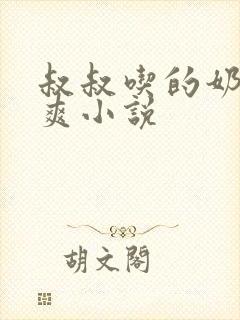 叔叔喫的奶
爽小説
胡文閣